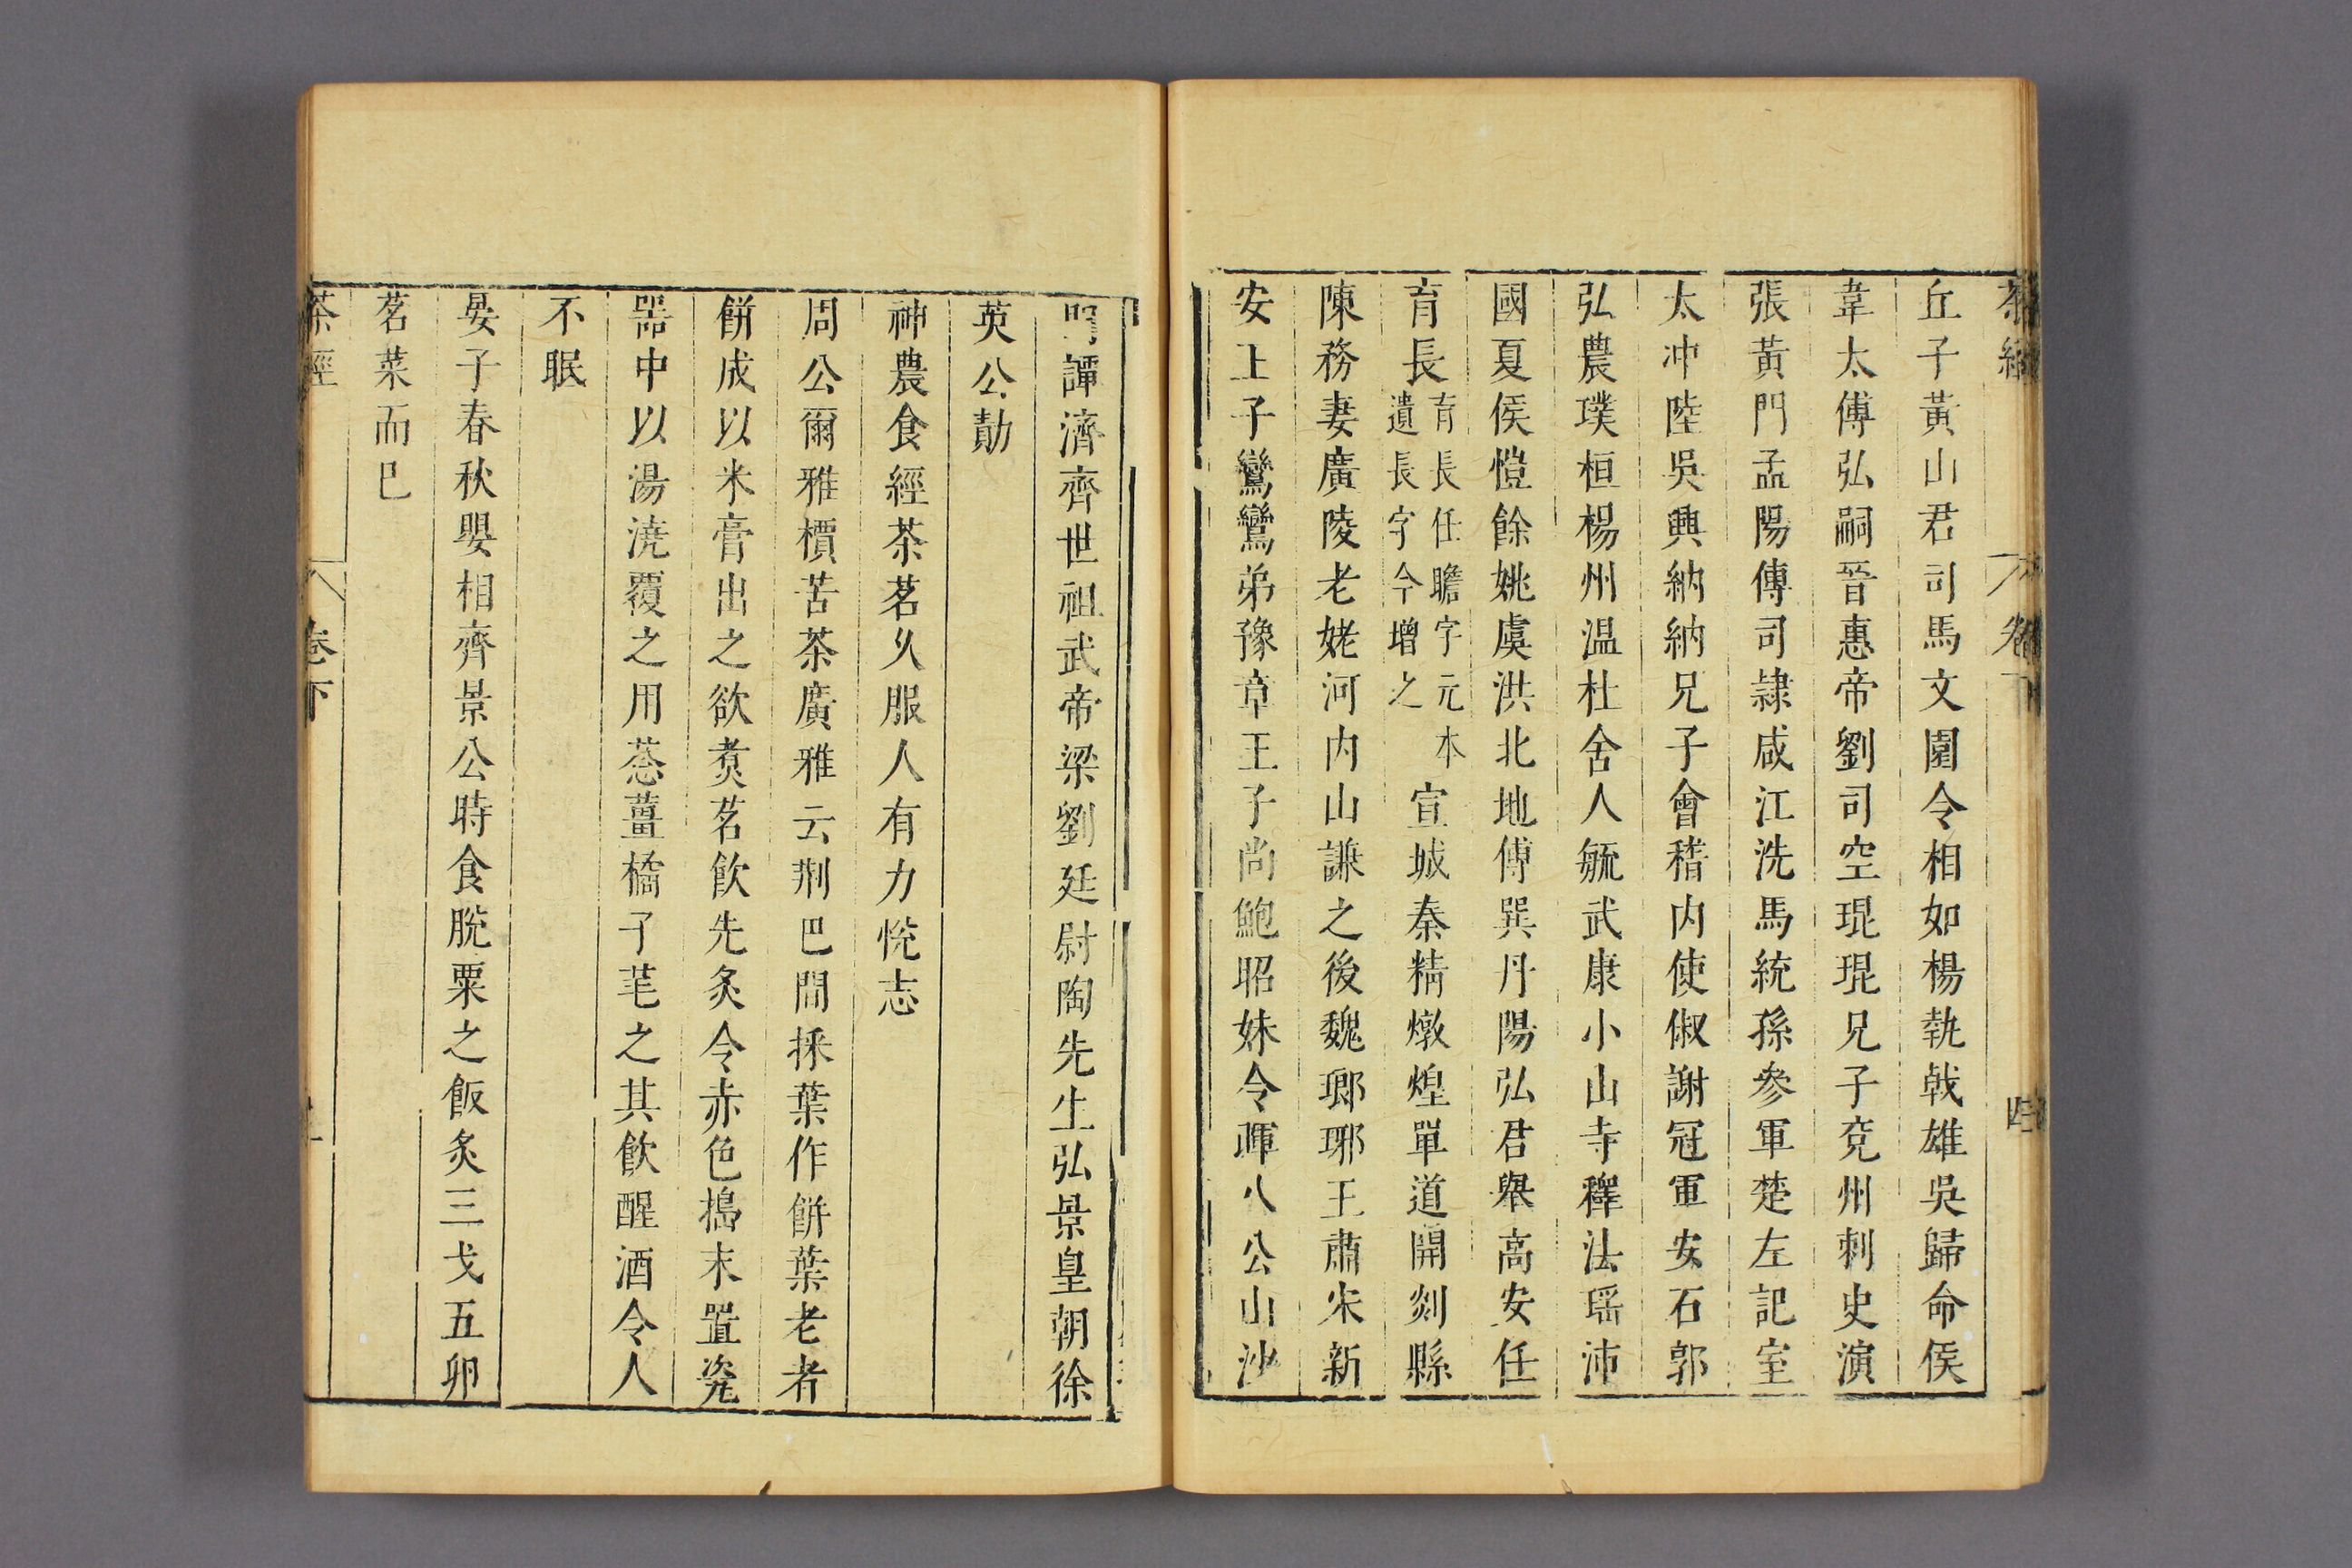 茶經 卷下 四
丘子黃山君司馬文園令相如楊執戟雄吳歸命侯
韋太傅弘嗣晉惠帝劉司空琨琨兄子兗州刺史演
張黃門孟陽傅司隸咸江洗馬統孫參軍楚左記室
太冲陸吳興納納兄子會稽内使俶謝冠軍安石郭
弘農璞桓楊州温杜舍人毓武康小山寺釋法瑶沛
國夏侯愷餘姚虞洪北地傅巽丹陽弘君舉髙安任
育長育長任瞻字元本遺長字今增之宣城秦精燉煌單道開剡縣
陳務妻廣陵老姥河内山謙之後魏瑯琊王肅宋新
安王子鸞鸞弟豫章王子尚鮑昭妹令暉八公山沙
門譚濟齊世祖武帝梁劉廷尉陶先生弘景皇朝徐
英公勣
神農食經茶茗久服人有力悅志
周公爾雅檟苦茶廣雅云荆巴間採葉作餅葉老者
餅成以米膏出之欲煮茗飲先炙令赤色搗末置瓷
器中以湯澆覆之用葱薑橘子芼之其飲醒酒令人
不眠
晏子春秋嬰相齊景公時食脫粟之飯炙三戈五卵
茗菜而巳
茶經 卷下